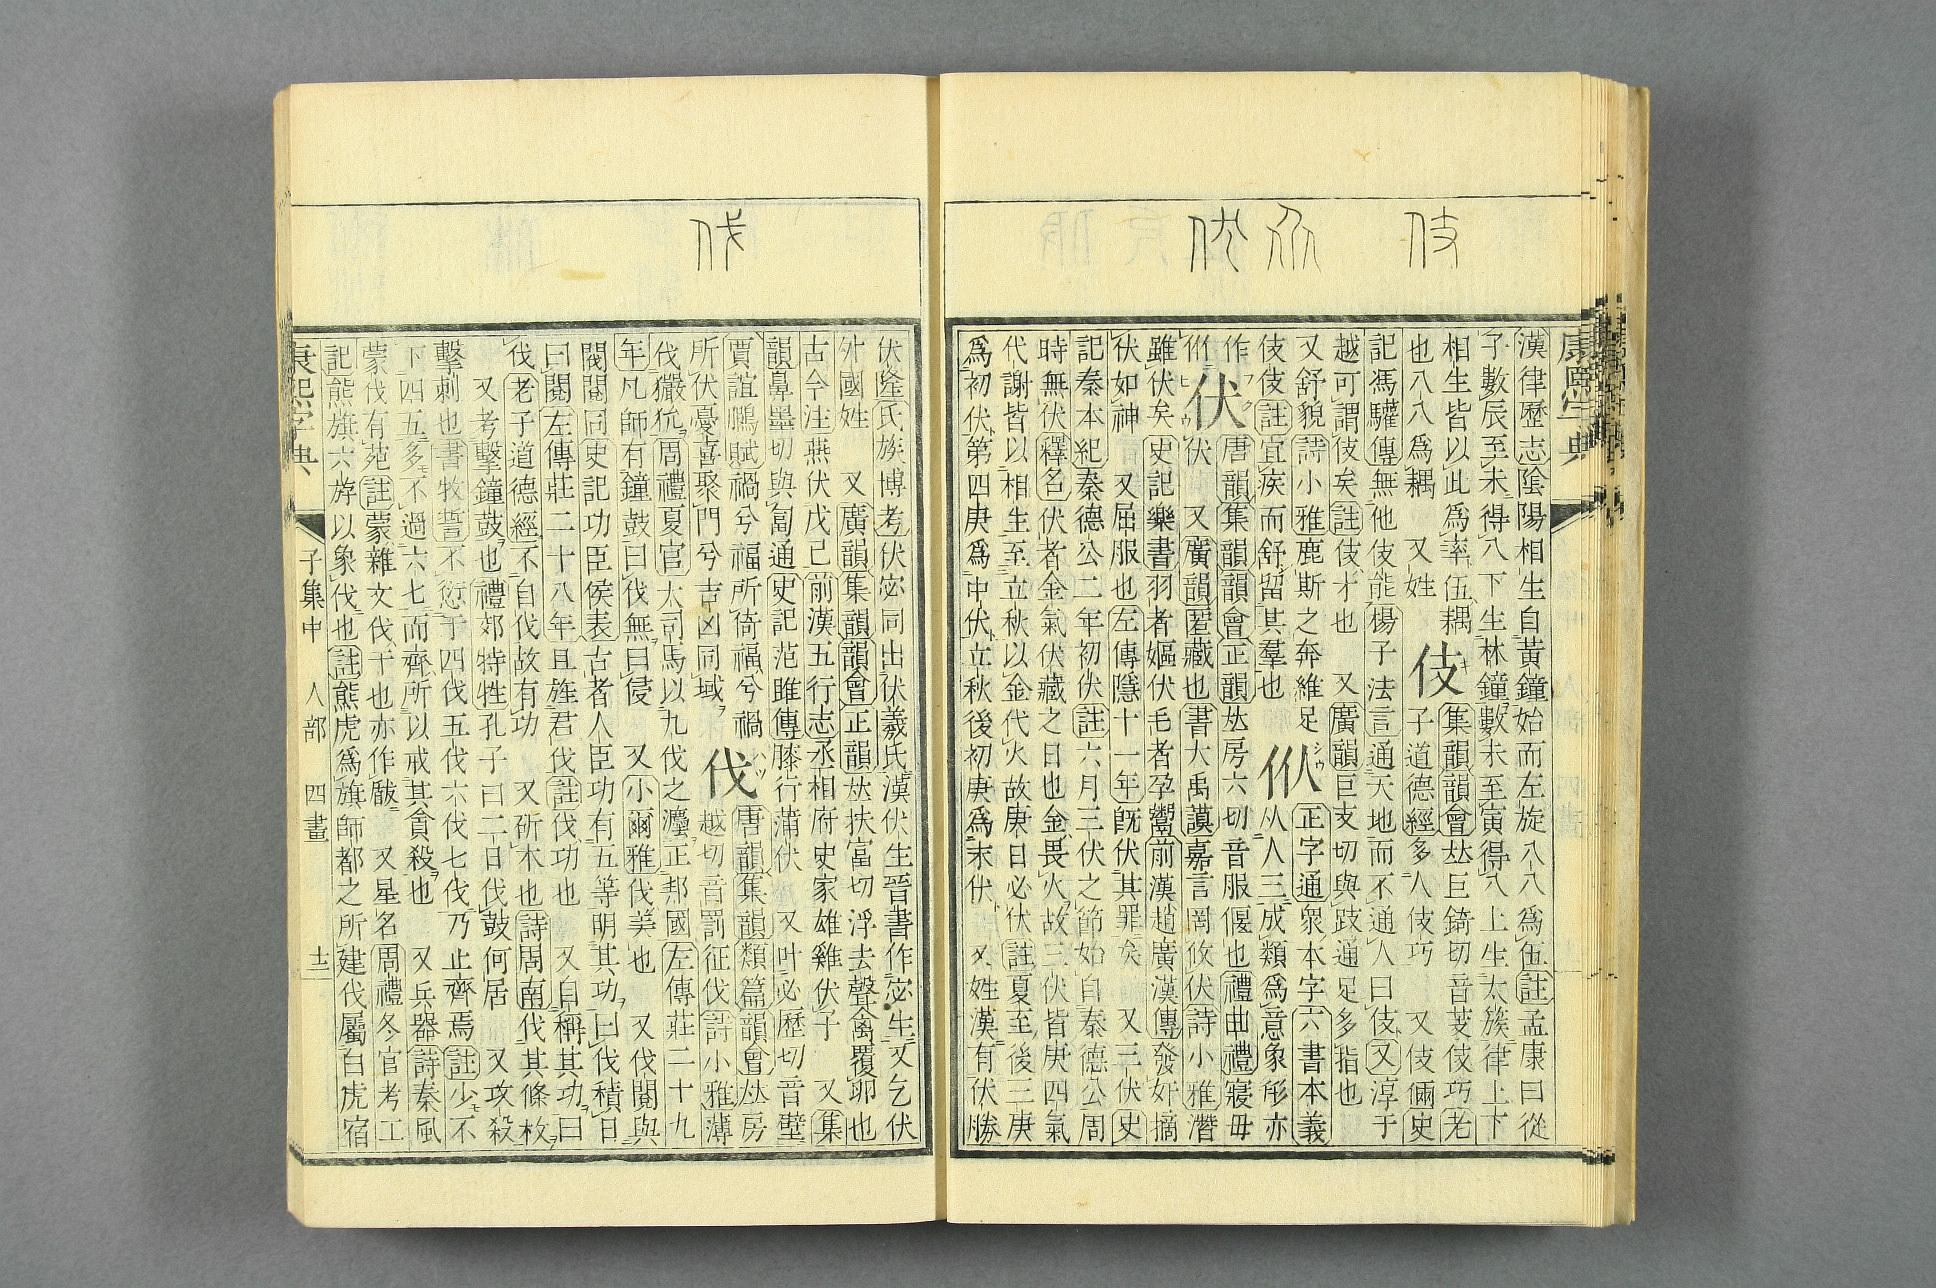 伎
㐺
伏
康熙字典
漢律歷志陰陽相生自黃鐘始而左旋八八爲伍註孟康曰從
子數辰至未得八下生林鐘數未至寅得八上生太簇律上下
相生皆以此爲率伍耦
也八八爲耦　又姓
伎
集韻韻會𠀤巨錡切音芰伎巧老
子道德經多人伎巧　又伎倆史
記馮驩傳無他伎能楊子法言通天地而不通人曰伎又淳于
越可謂伎矣註伎才也　又廣韻巨支切與跂通足多指也
又舒貌詩小雅鹿斯之奔維足
伎伎註宜疾而舒留其羣也
㐺
正字通眾本字六書本義
从人三成類爲意象形亦
作
㐺
伏
唐韻集韻韻會正韻𠀤房六切音服偃也禮曲禮寢毋
伏　又廣韻匿藏也書大禹謨嘉言罔攸伏詩小雅潛
雖伏矣史記樂書羽者嫗伏毛者孕鬻前漢趙廣漢傳發奸摘
伏如神　又屈服也左傳隱十一年旣伏其罪矣　又三伏史
記秦本紀秦德公二年初伏註六月三伏之節始自秦德公周
時無伏釋名伏者金氣伏藏之日也金畏火故三伏皆庚四氣
代謝皆以相生至立秋以金代火故庚日必伏註夏至後三庚
爲初伏第四庚爲中伏立秋後初庚爲末伏　又姓漢有伏勝
伐
伏隆氏族博考伏宓同出伏羲氏漢伏生晉書作宓生又乞伏
外國姓　又廣韻集韻韻會正韻𠀤扶富切浮去聲禽覆卵也
古今注燕伏戊己前漢五行志丞相府史家雄雞伏子　又集
韻鼻墨切與匐通史記范雎傳膝行蒲伏　又叶必歷切音壁
賈誼鵩賦禍兮福所倚福兮禍
所伏憂喜聚門兮吉凶同域
伐
唐韻集韻類篇韻會𠀤房
越切音罰征伐詩小雅薄
伐玁狁周禮夏官大司馬以九伐之灋正邦國左傳莊二十九
年凡師有鐘鼓曰伐無曰侵　又小爾雅伐美也　又伐閱與
閥閱同史記功臣侯表古者人臣功有五等明其功曰伐積日
曰閱左傳莊二十八年且旌君伐註伐功也　又自稱其功曰
伐老子道德經不自伐故有功　又斫木也詩周南伐其條枚
又考擊鐘鼓也禮郊特牲孔子曰二日伐鼓何居　又攻殺
擊刺也書牧誓不愆于四伐五伐六伐七伐乃止齊焉註少不
下四五多不過六七而齊所以戒其貪殺也　又兵器詩秦風
蒙伐有苑註蒙雜文伐干也亦作瞂　又星名周禮冬官考工
記熊旗六斿以象伐也註熊虎爲旗師都之所建伐屬白虎宿
康熙字典　子集中　人部　四畫　十二